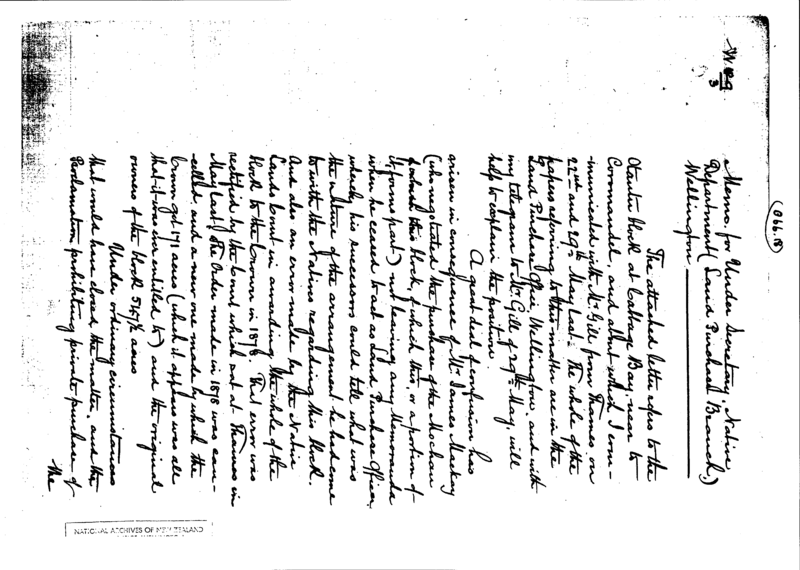 066.18
Memo for Under Secretary, Native
Department (Land Purchase Branch,)
Wellington
The attached letter refers to the
Otautu block at Cabbage Bay, near to
Coromandel, and about which I com-
-municated with Mr. Gill from Thames on
22nd and 29th May last. The whole of the
papers referring to this matter are in the
Land Purchase Office Wellington, and with
my telegram to Mr. Gill of 29th May, will
help to explain the position.
A great deal of confusion has
arisen in consequence of Mr. James Mackay
(who negotiated the purchase of the Moehau
block, of which this, or a portion of
it, forms part) not leaving any Memoranda
when he ceased to act as Land Purchase Officer,
which his successors could tell what was
the nature of the arrangement he had come
to with the Natives regarding this block.
And also an error made by the Native
Lands Court in awarding the whole of the
block to the Crown in 1878. This error was
rectified by the Court which sat at Thames in
May last. The Order made in 1878 was can-
-celled, and a new one made by which the
Crown got 171 acres (which it appears was all
that it was entitled to) and the original
owners of the block 567½ acres
Under ordinary circumstances
that would have closed the matter, and the
Proclamation prohibiting private purchase of
the
NATIONAL ARCHIVES OF NEW ZEALAND